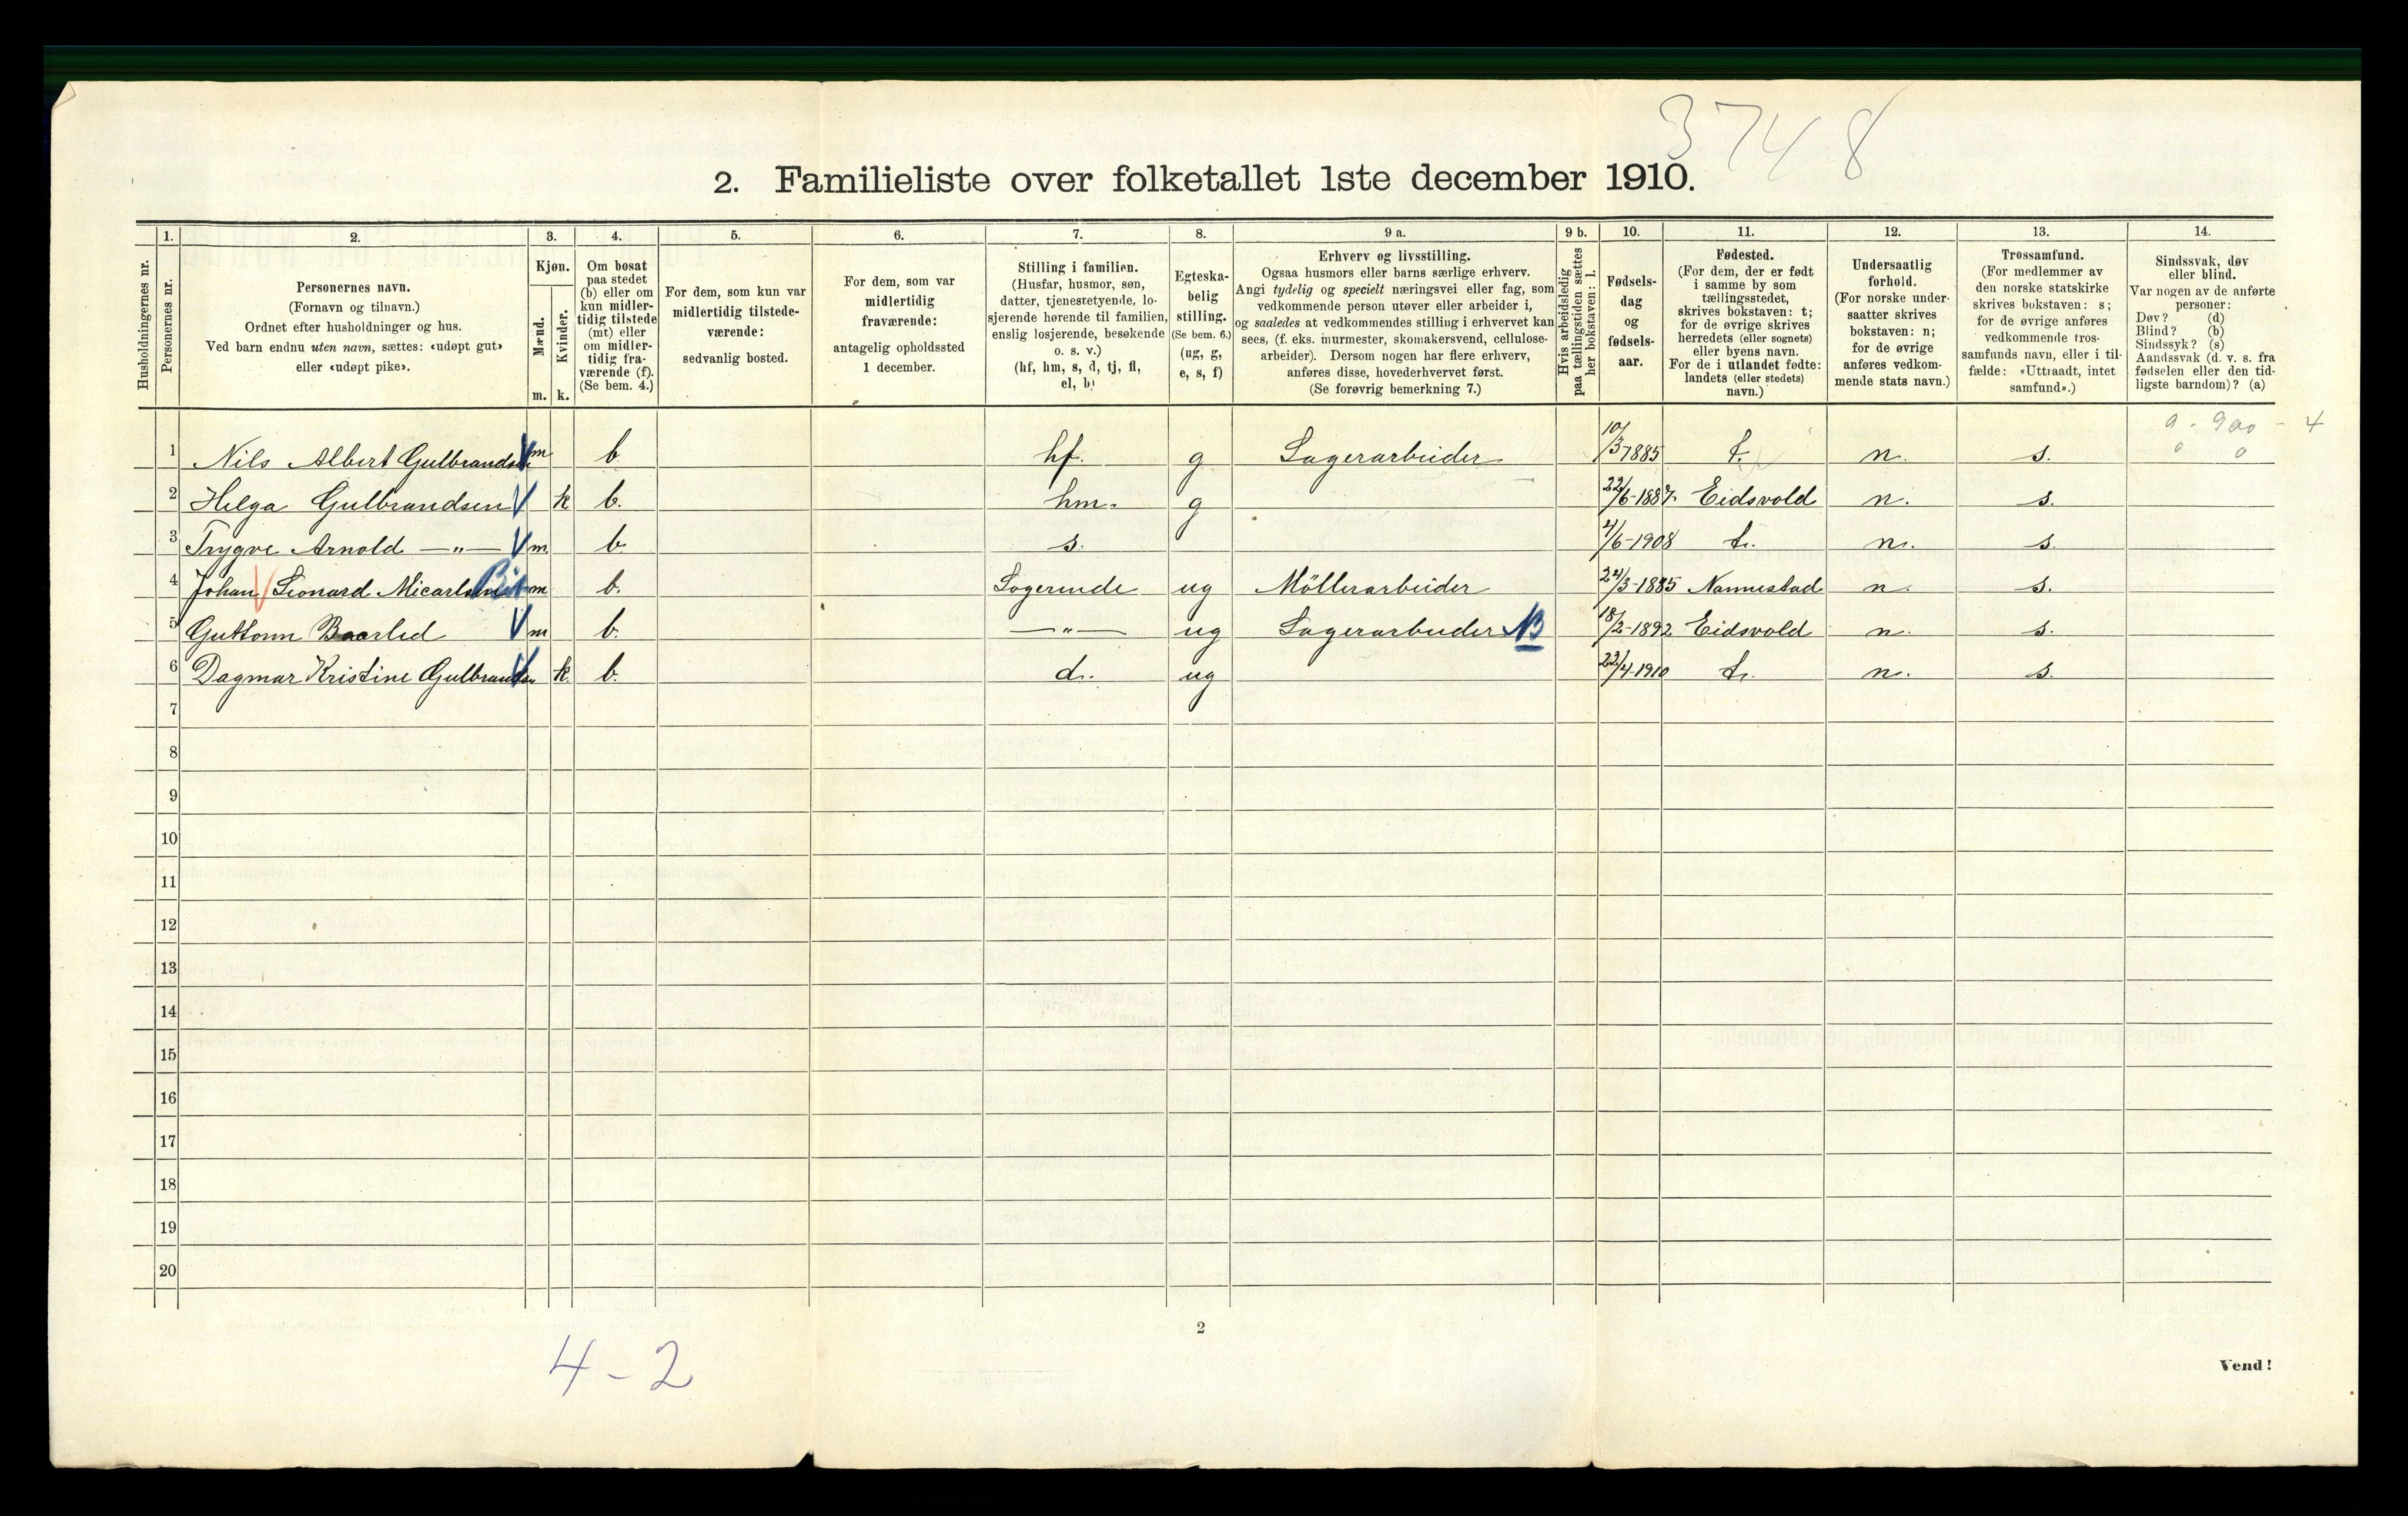 3748
2. Familieliste over folketallet 1ste december 1910.
Husholdningernes nr.
1. Personernes nr.
2. Personernes navn.
(Fornavn og tilnavn.)
Ordnet efter husholdninger og hus.
Ved barn endnu uten navn, sættes: «udøpt gut»
eller «udøpt pike».
3. Kjøn.
Mænd. m.
Kvinder. k.
4. Om bosat
paa stedet
(b) eller om
kun midler-
tidig tilstede
(mt) eller
om midler-
tidig fra-
værende (f).
(Se bem. 4.)
5. For dem, som kun var
midlertidig tilstede-
værende:
sedvanlig bosted.
6. For dem, som var
midlertidig
fraværende:
antagelig opholdssted
1 december.
7. Stilling i familien.
(Husfar, husmor, søn,
datter, tjenestetyende, lo-
sjerende hørende til familien,
enslig losjerende, besøkende
o. s. v.)
(hf, hm, s, d, tj, fl,
el, b)
8. Egteska-
belig
stilling.
(Se bem. 6.)
(ug, g,
e, s, f)
9 a. Erhverv og livsstilling.
Ogsaa husmors eller barns særlige erhverv.
Angi tydelig og specielt næringsvei eller fag, som
vedkommende person utøver eller arbeider i,
og saaledes at vedkommendes stilling i erhvervet kan
sees, (f. eks. murmester, skomakersvend, cellulose-
arbeider). Dersom nogen har flere erhverv,
anføres disse, hovederhvervet først.
(Se forøvrig bemerkning 7.)
9 b. Hvis arbeidsledig
paa tællingstiden sættes
her bokstaven: l.
10. Fødsels-
dag
og
fødsels-
aar.
11. Fødested.
(For dem, der er født
i samme by som
tællingsstedet,
skrives bokstaven: t;
for de øvrige skrives
herredets (eller sognets)
eller byens navn.
For de i utlandet fødte:
landets (eller stedets)
navn.)
12. Undersaatlig
forhold.
(For norske under-
saatter skrives
bokstaven: n;
for de øvrige
anføres vedkom-
mende stats navn.)
13. Trossamfund.
(For medlemmer av
den norske statskirke
skrives bokstaven: s;
for de øvrige anføres
vedkommende tros-
samfunds navn, eller i til-
fælde: «Uttraadt, intet
samfund».)
14. Sindssvak, døv
eller blind.
Var nogen av de anførte
personer:
Døv? (d)
Blind? (b)
Sindssyk? (s)
Aandssvak (d. v. s. fra
fødselen eller den tid-
ligste barndom)? (a)
0 - 900 - 4
0 0
1 Nils Albert Gulbrandsen m b hf. g Lagerarbeider 10/3 1885 t. n. s.
2 Helga Gulbrandsen k b. hm. g 22/6-1887. Eidsvold n. s.
3 Trygve Arnold —„— m b. s. 4/6-1908 t. n. s.
4 Johan Leonard Micarlsen m b. Logerende ug Möllerarbeider 24/3-1885 Nannestad n. s.
5 Guttorm Baarlid m b. —„— ug Lagerarbeider 18/2-1892 Eidsvold n. s.
6 Dagmar Kristine Gulbrandsen k. b. d. ug 22/4-1910 t. n. s.
7
8
9
10
11
12
13
14
15
16
17
18
19
20
2
4-2
Vend!